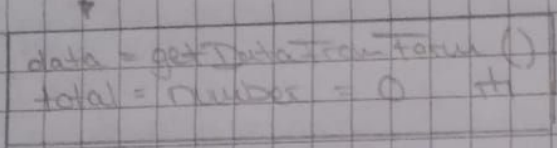 data = getDataFromForm()
total = number = 0